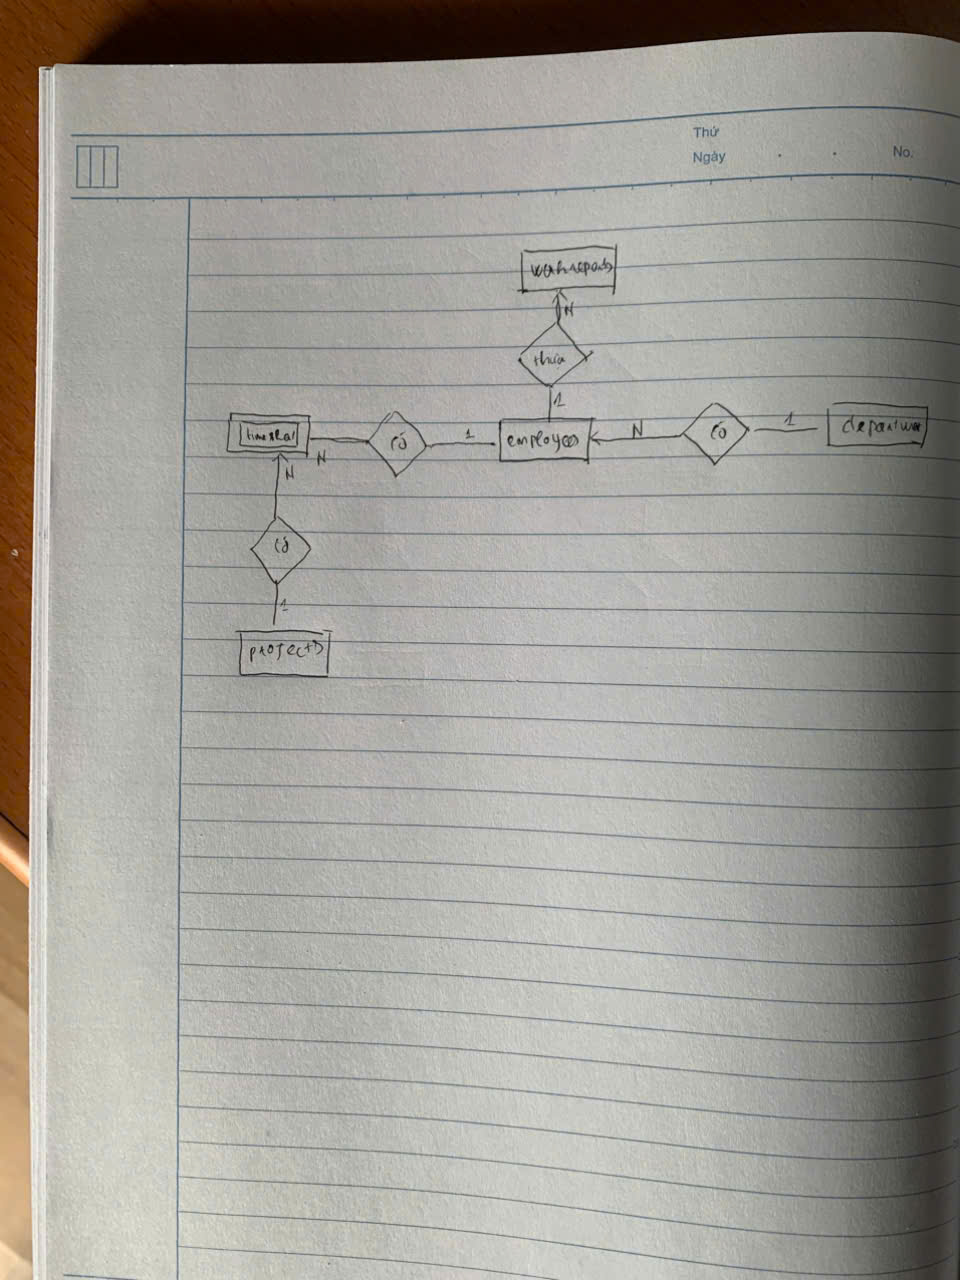 Thứ
Ngày
No.
workreports
N
1
timesheet
N
có
1
employees
N
có
1
N
có
1
projects